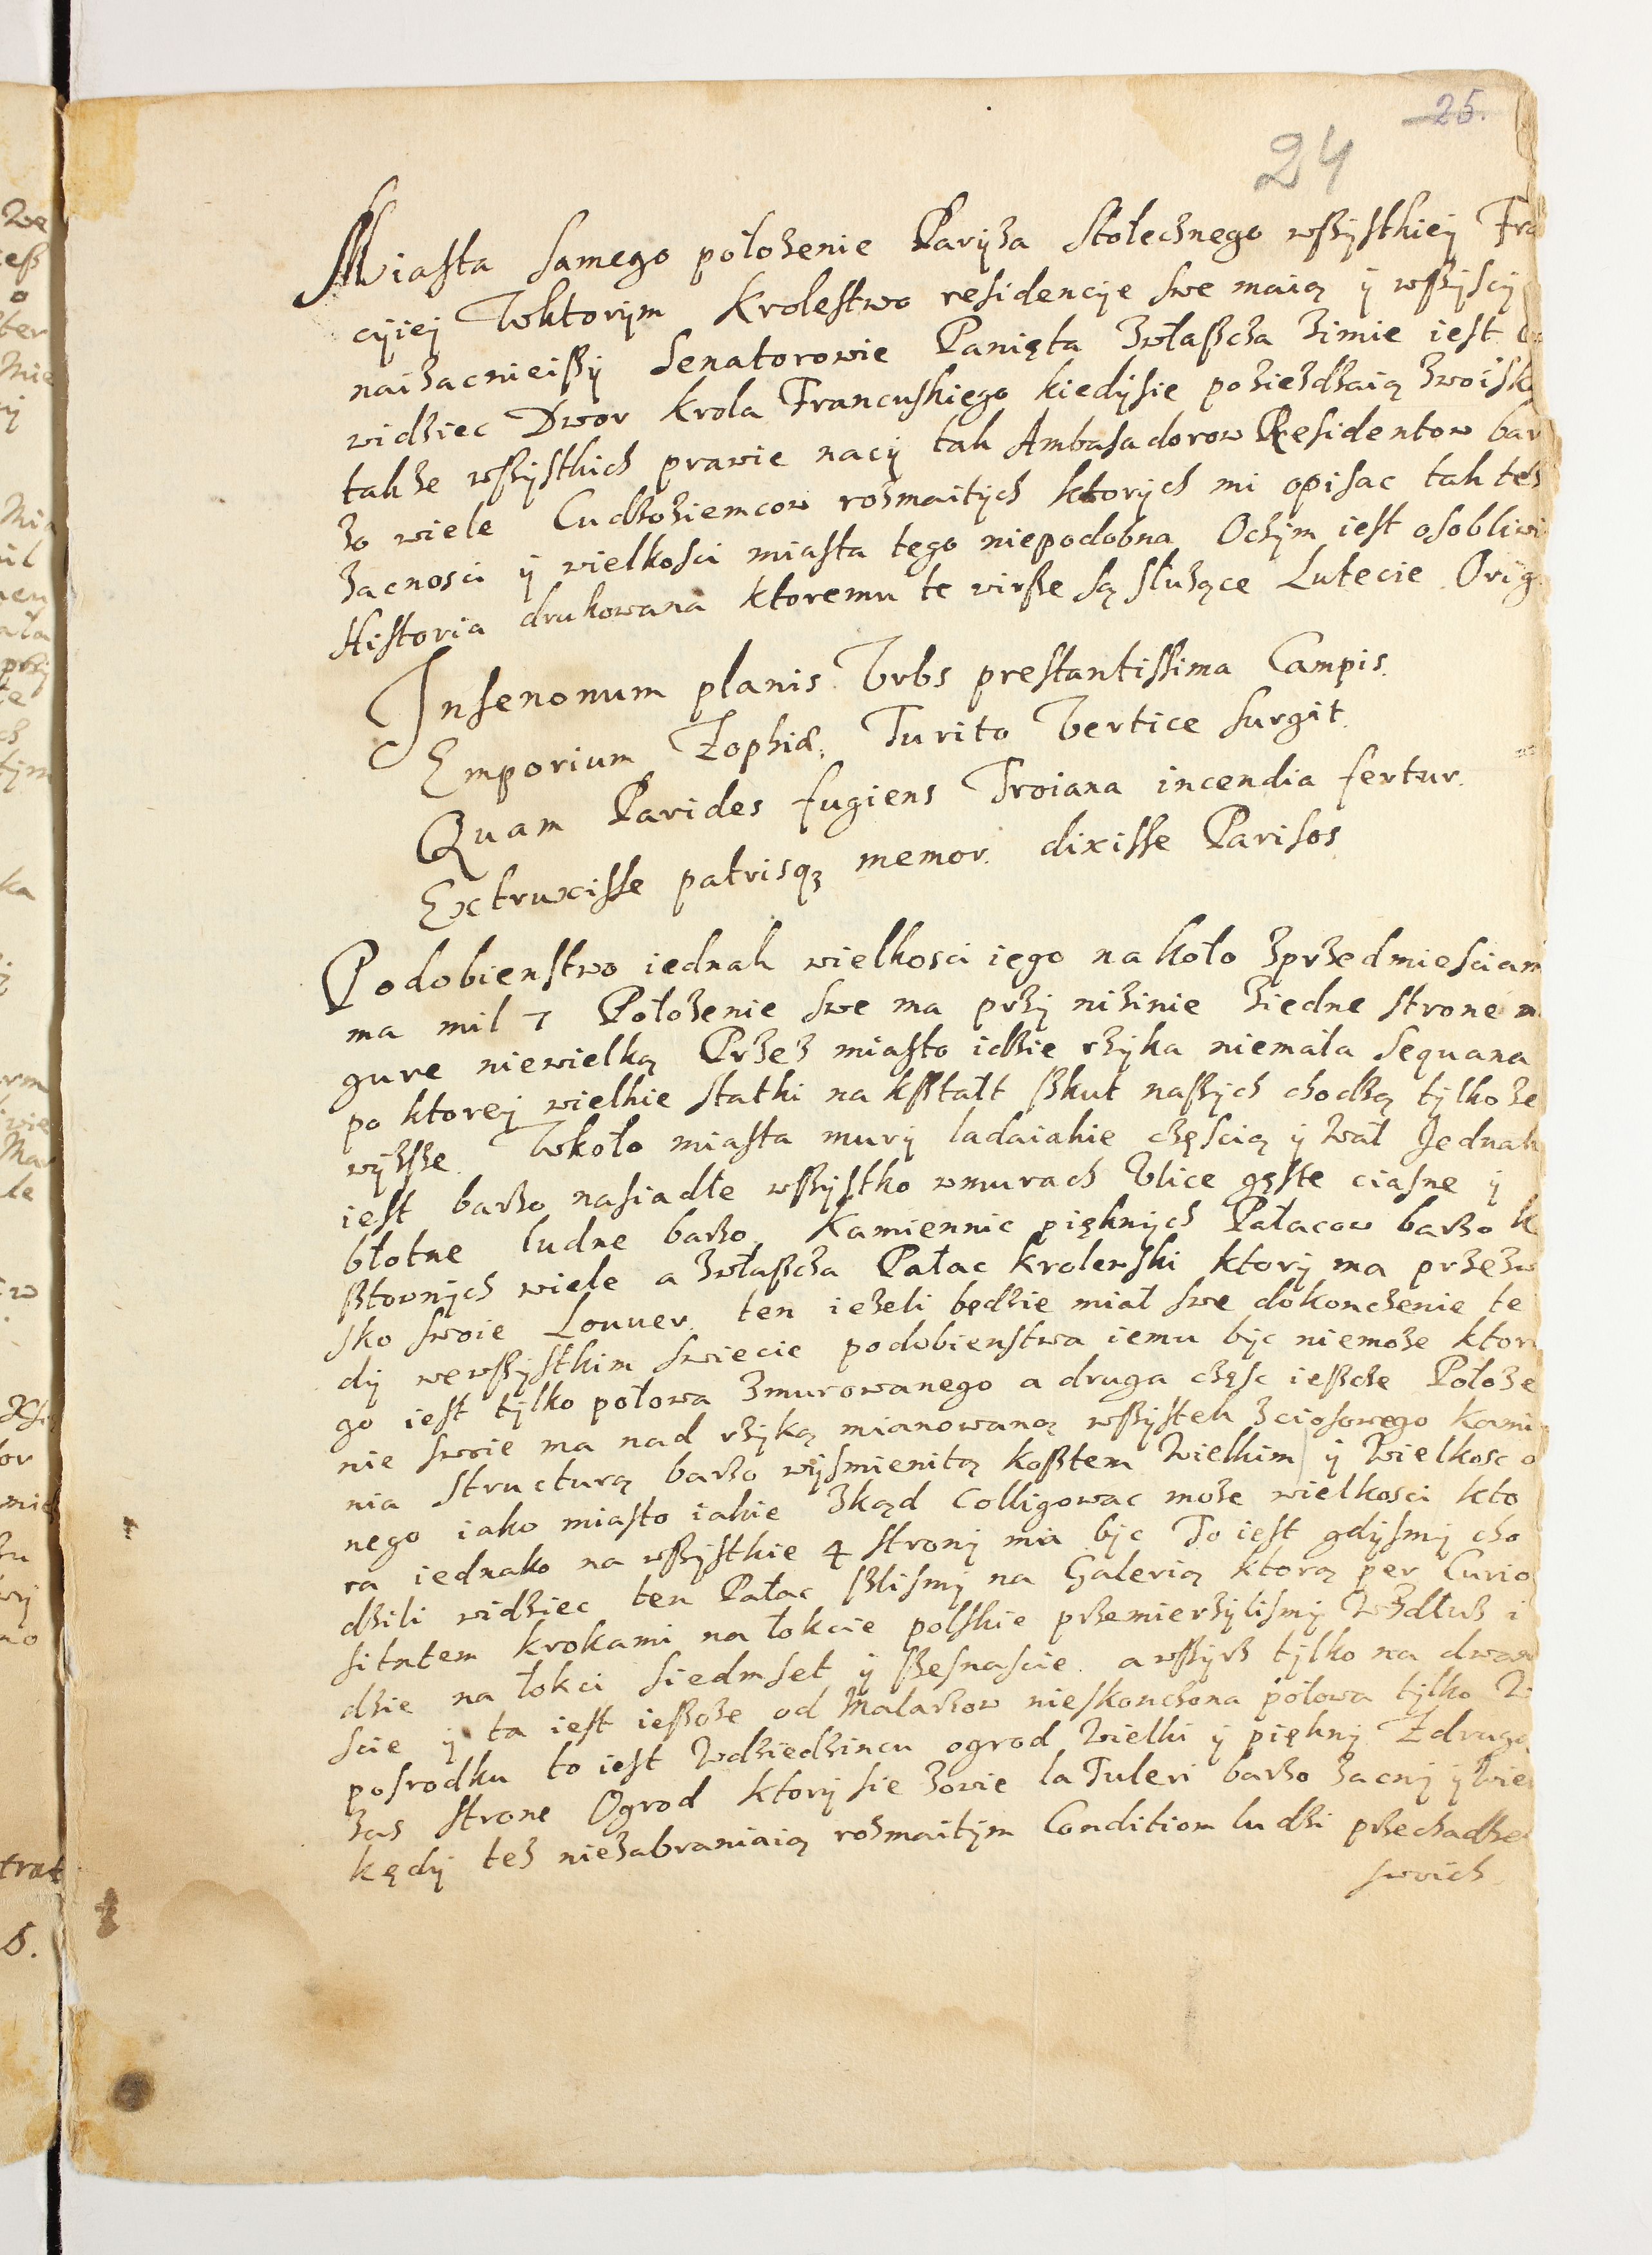 25.
24
Miasta samego położenie Paryża Stołecznego wszystkiey Fra
cyiey Wktorym Krolestwo residencye swe maią y wszyscy
naizacnieiszy Senatorowie Panięta zwłaszcza zimie iest
widziec Dwor krola Francuskiego kiedysie poziezdzaią zwoisk
takze wszystkich prawie nacy tak Ambasadorow Residentow bar
zo wiele Cudzoziemcow rozmaitych ktorych mi opisac tak tez
zacnosci y wielkosci miasta tego niepodobna Oczym iest osobliwi
Historia drukowana ktoremu te wirsze są służące Lutecie Orig
Insenonum planis Vrbs prestantissima Campis.
Emporium Zophiæ, Turito Vertice surgit.
Quam Parides fugiens Troiana incendia fertur.
Extruxisse patrisqꝫ memor. dixisse Parisos
Podobienstwo iednak wielkosci iego na koło zprzedmiesciam
ma mil 7 Położenie swe ma przy nizinie ziedne strone m
gure niewielką Przez miasto idzie rzyka niemała Sequana
po ktorey wielkie statki na kształt szkut naszych chodzą tylko ze
wyzsze. Wkoło miasta mury ladaiakie częscią y wał Jednak
iest barzo nasiadłe wszystko wmurach Vlice gęste ciasne y
błotne ludne barzo. Kamiennic pięknych Pałacow barzo k
sztownych wiele a zwłaszcza Pałac krolewski ktory ma przezw
sko swoie Louuer. ten iezeli będzie miał swe dokonczenie te
dy wewszystkim swiecie podobienstwa iemu byc niemoze ktor
go iest tylko połowa zmurowanego a druga częsc ieszcze Położe
nie swoie ma nad rzyką mianowaną wszystek zciosowego kami
nia structurą barzo wysmienitą kosztem Wielkim y Wielkosc o
nego iako miasto iakie zkąd colligowac moze wielkosci kto
ra iednako na wszystkie 4 strony ma byc To iest gdysmy cho
dzili widziec ten Pałac szlismy na Galerią ktorą per Curio
sitatem krokami na łokcie polskie przemierzylismy Wzdłuz i
dzie na łokci siedmset y szesnascie. a wszyrz tylko na dwan
scie y ta iest ieszcze od Malarzow nieskonczona połowa tylko W
posrodku to iest Wdziedzincu ogrod Wielki y piękny Zdrugą
zas strone Ogrod ktory sie zowie la Tuleri barzo zacny y Wiel
kędy tez niezabraniaią rozmaitym Condition ludzi przechadzek
swoich